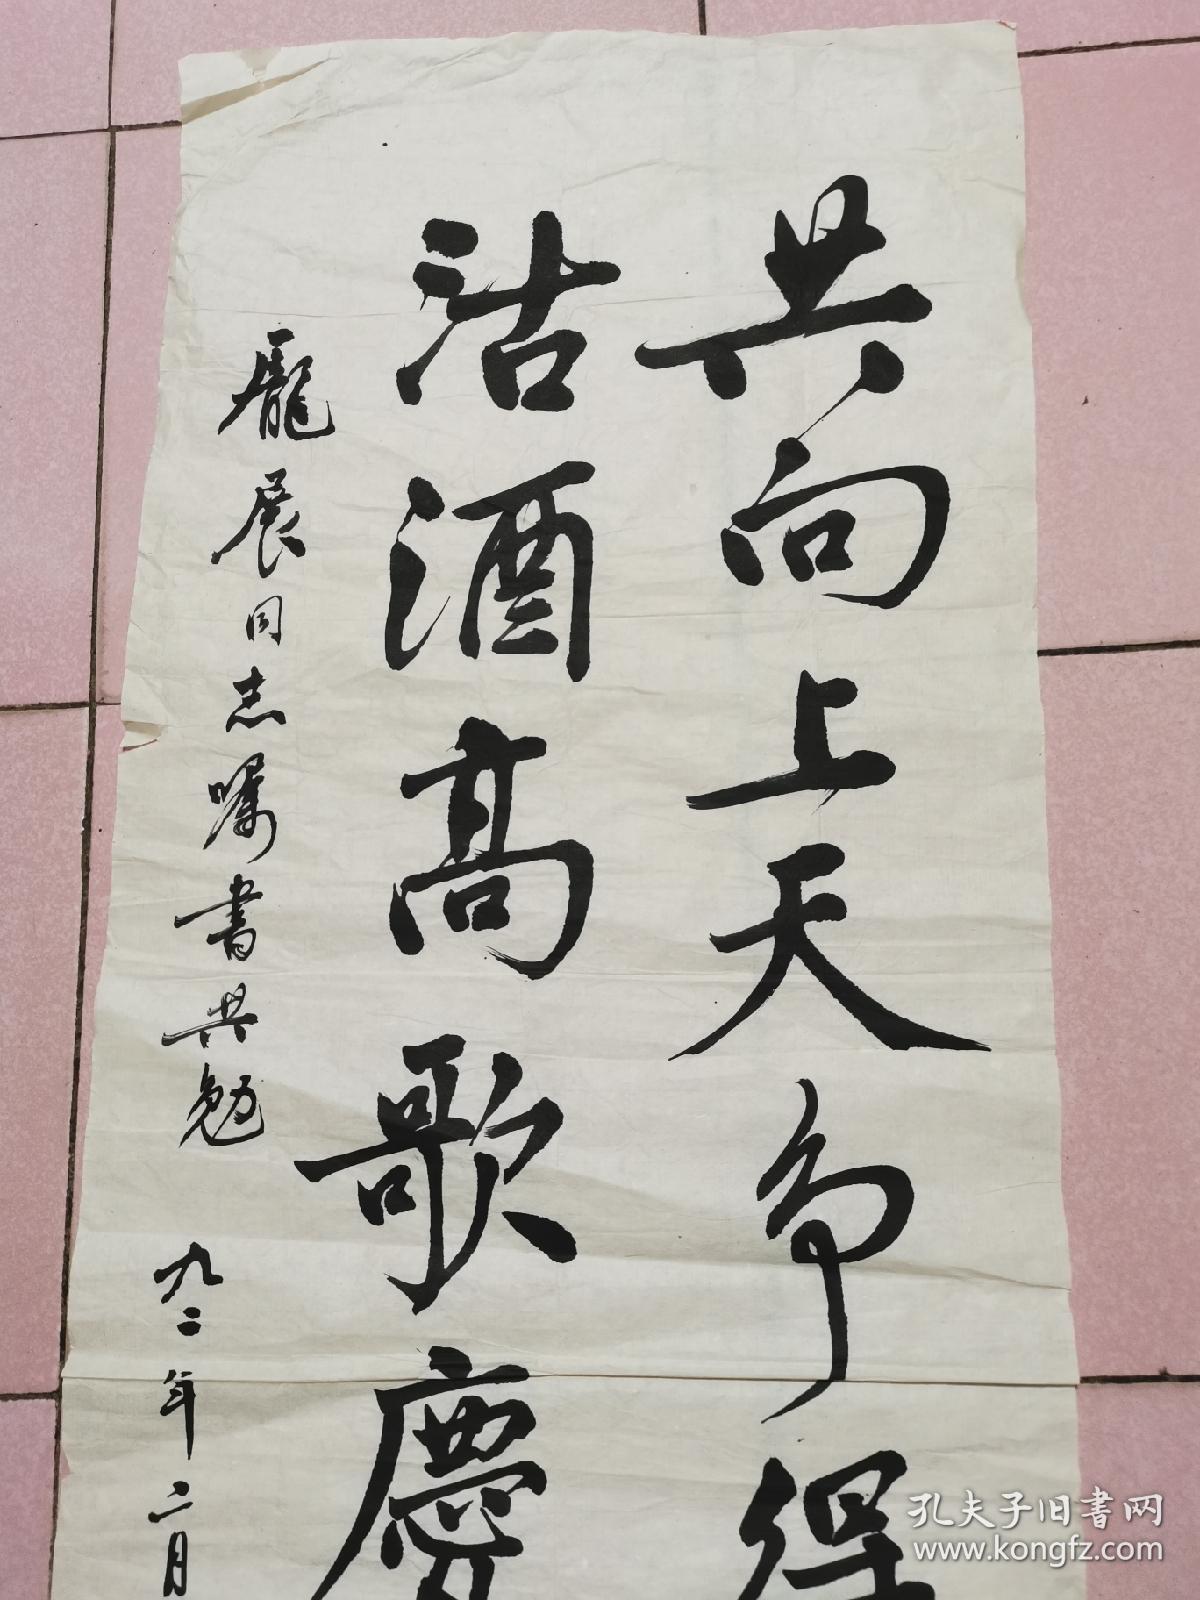 共向上天争得
沽酒高歌慶
龐展同志嘱書共勉
九二年二月
孔夫子旧书网
www.kongfz.com